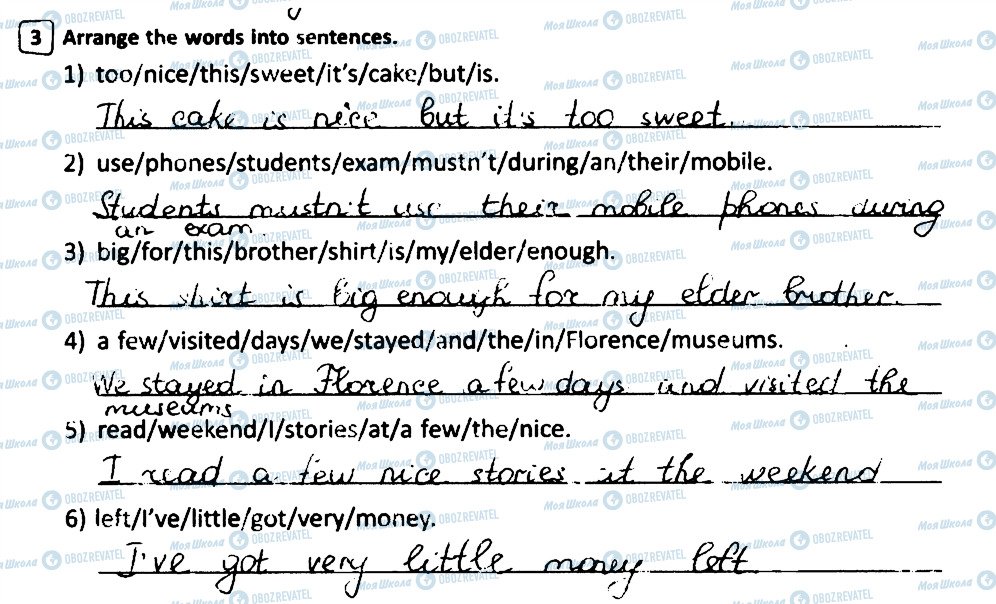 3 Arrange the words into sentences.
1) too/nice/this/sweet/it's/cake/but/is.
This cake is nice but it's too sweet.
2) use/phones/students/exam/mustn't/during/an/their/mobile.
Students mustn't use their mobile phones during
an exam.
3) big/for/this/brother/shirt/is/my/elder/enough.
This shirt is big enough for my elder brother.
4) a few/visited/days/we/stayed/and/the/in/Florence/museums.
We stayed in Florence a few days and visited the
museums
5) read/weekend/I/stories/at/a few/the/nice.
I read a few nice stories at the weekend
6) left/I've/little/got/very/money.
I've got very little money left